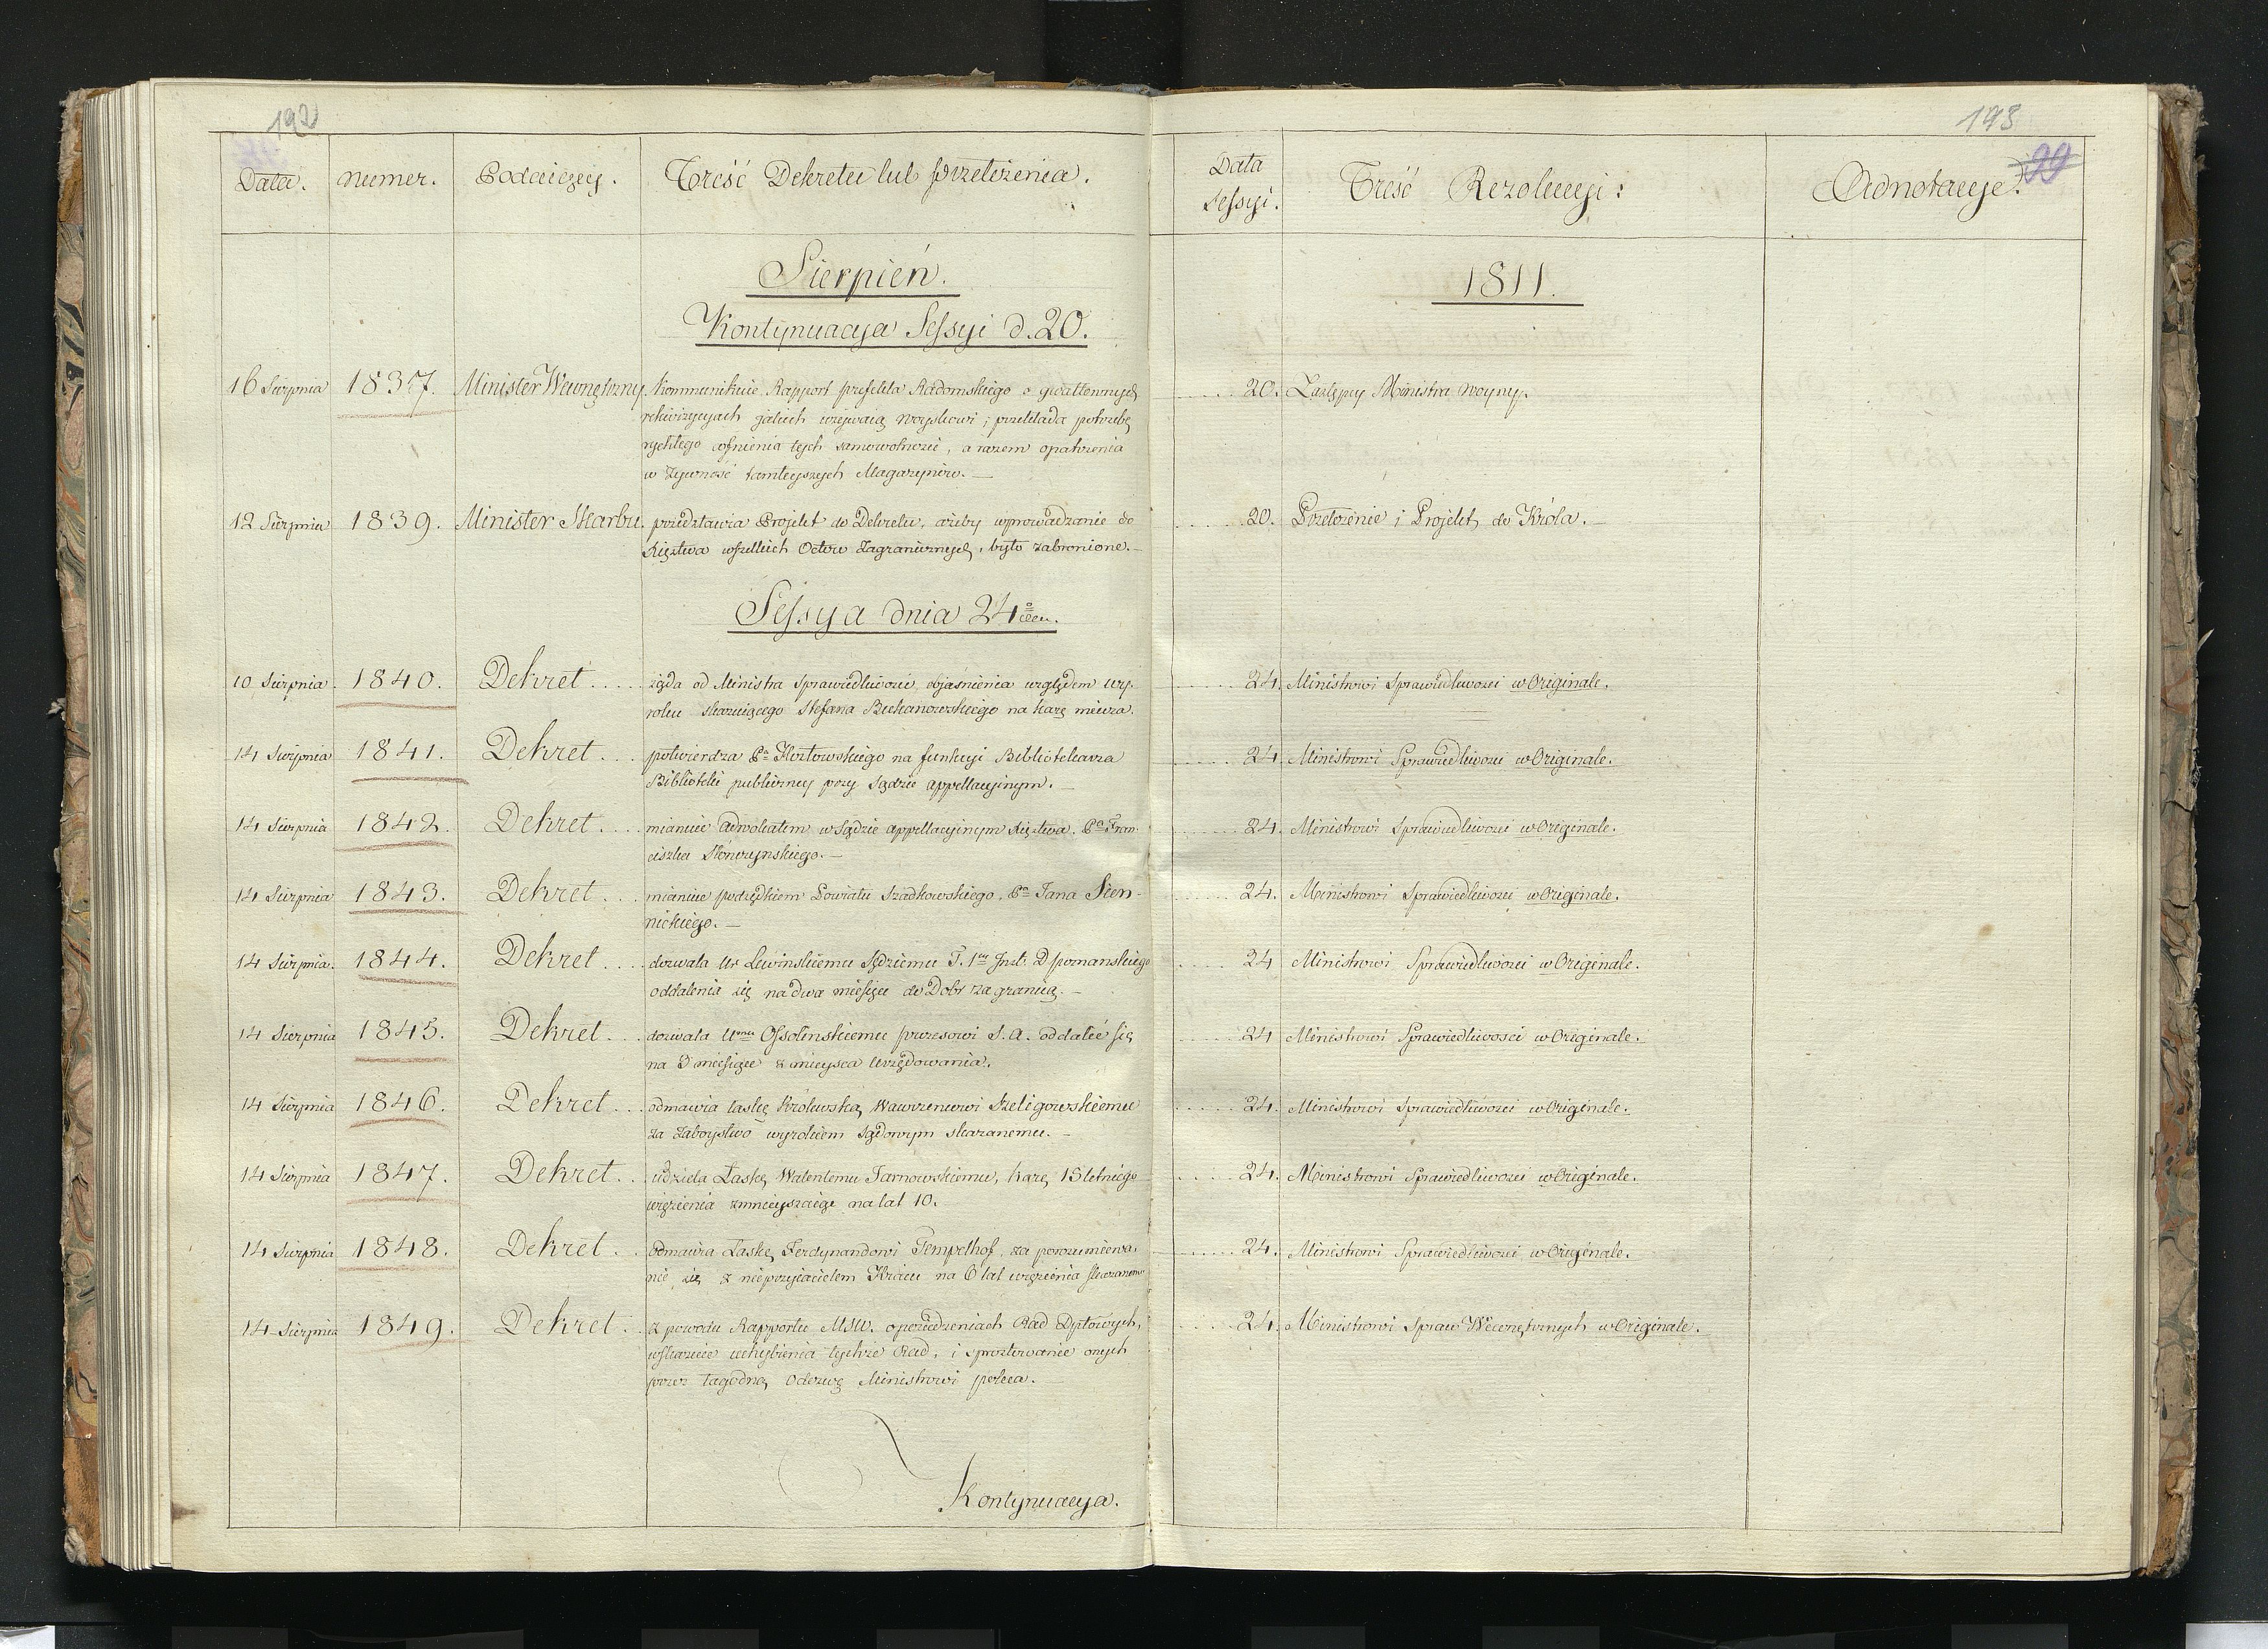 192
Data.
Numer.
Podaiący.
Treść Dekretu lub przełożenia.
Sierpień.
Kontynuacya Sessyi d. 20.
16 Sierpnia
1837.
Minister Wewnętrzny
kommunikuie Rapport prefekta Radomskiego o gwałtownych
rekwizycyach jakich używaią woyskowi; przekłada potrzebę
rychłego cofnienia tych samowolności, a razem opatrzenia
w żywność tamteyszych Magazynów. —
12 Sierpnia
1839.
Minister Skarbu.
przedstawia Projekt do Dekretu, ażeby wprowadzanie do
Xięztwa wszelkich Octów Zagranicznych, było zabronione. —
Sessya dnia 24
10 Sierpnia.
1840.
Dekret .....
żąda od Ministra Sprawiedliwości, objaśnienia względem wy-
roku skazuiącego Stefana Biekanowskiego na karę miecza.
14 Sierpnia
1841.
Dekret ....
potwierdza Pa Kozłowskiego na funkcyi Bibliotekarza
Biblioteki publiczney przy Sądzie appellacyinym. —
14 Sierpnia
1842.
Dekret ....
mianuie adwokatem w Sądzie appellacyinym Xięztwa, Pa Fran-
ciszka Słonczynskiego. —
14 Sierpnia
1843.
Dekret ....
mianuie podsędkiem Powiatu Szadkowskiego, Pa Jana Sien-
nickiego. —
14 Sierpnia.
1844.
Dekret ....
dozwala Ur Lewinskiemu Sędziemu T. 1ey Inst. D. poznanskiego
oddalenia się na dwa miesiące do Dobr za granicą. —
14 Sierpnia
1845.
Dekret ....
dozwala Umu Ossolinskiemu prezesowi S. A. oddalić się
na 3 miesiące z mieysca Urzędowania.
14 Sierpnia
1846.
Dekret ...
odmawia łaskę Królewską Wawrzencowi Szeligowskiemu
za Zaboystwo wyrokiem Sądowym skazanemu. —
14 Sierpnia
1847.
Dekret ...
udziela Łaskę Walentemu Tarnowskiemu, karę 15 letniego
więzienia zmnieyszaiąc na lat 10.
14 Sierpnia
1848.
Dekret ..
Odmawia Łaskę, Ferdynandowi Tempelhof, za porozumiewa-
nie się z nieprzyiacielem Kraiu na 6 lat więzienia skazanemu
14 Sierpnia
1849.
Dekret ..
z powodu Rapportu MSW. o posiedzeniach Rad Dptowych,
wskazuie uchybienia tychże Rad, i sprostowanie onych
przez łagodną Odezwę Ministrowi poleca. —
Kontynuacya.
193
Data
Sessyi.
Treść Rezolucyi:
Adnotacye.
99
1811.
.... 20.
Zastępcy Ministra Woyny.
.... 20.
Przełożenie i Projekt do Króla. —
.... 24.
Ministrowi Sprawiedliwości w Originale.
.... 24.
Ministrowi Sprawiedliwości w Originale.
.... 24.
Ministrowi Sprawiedliwości w Originale.
.... 24.
Ministrowi Sprawiedliwości w Originale.
.... 24
Ministrowi Sprawiedliwości w Originale.
.... 24
Ministrowi Sprawiedliwosci w Originale.
.... 24.
Ministrowi Sprawiedliwości w Originale.
.... 24.
Ministrowi Sprawiedliwości w Originale.
.... 24.
Ministrowi Sprawiedliwości w Originale.
.... 24.
Ministrowi Spraw Wewnętrznych w Originale.